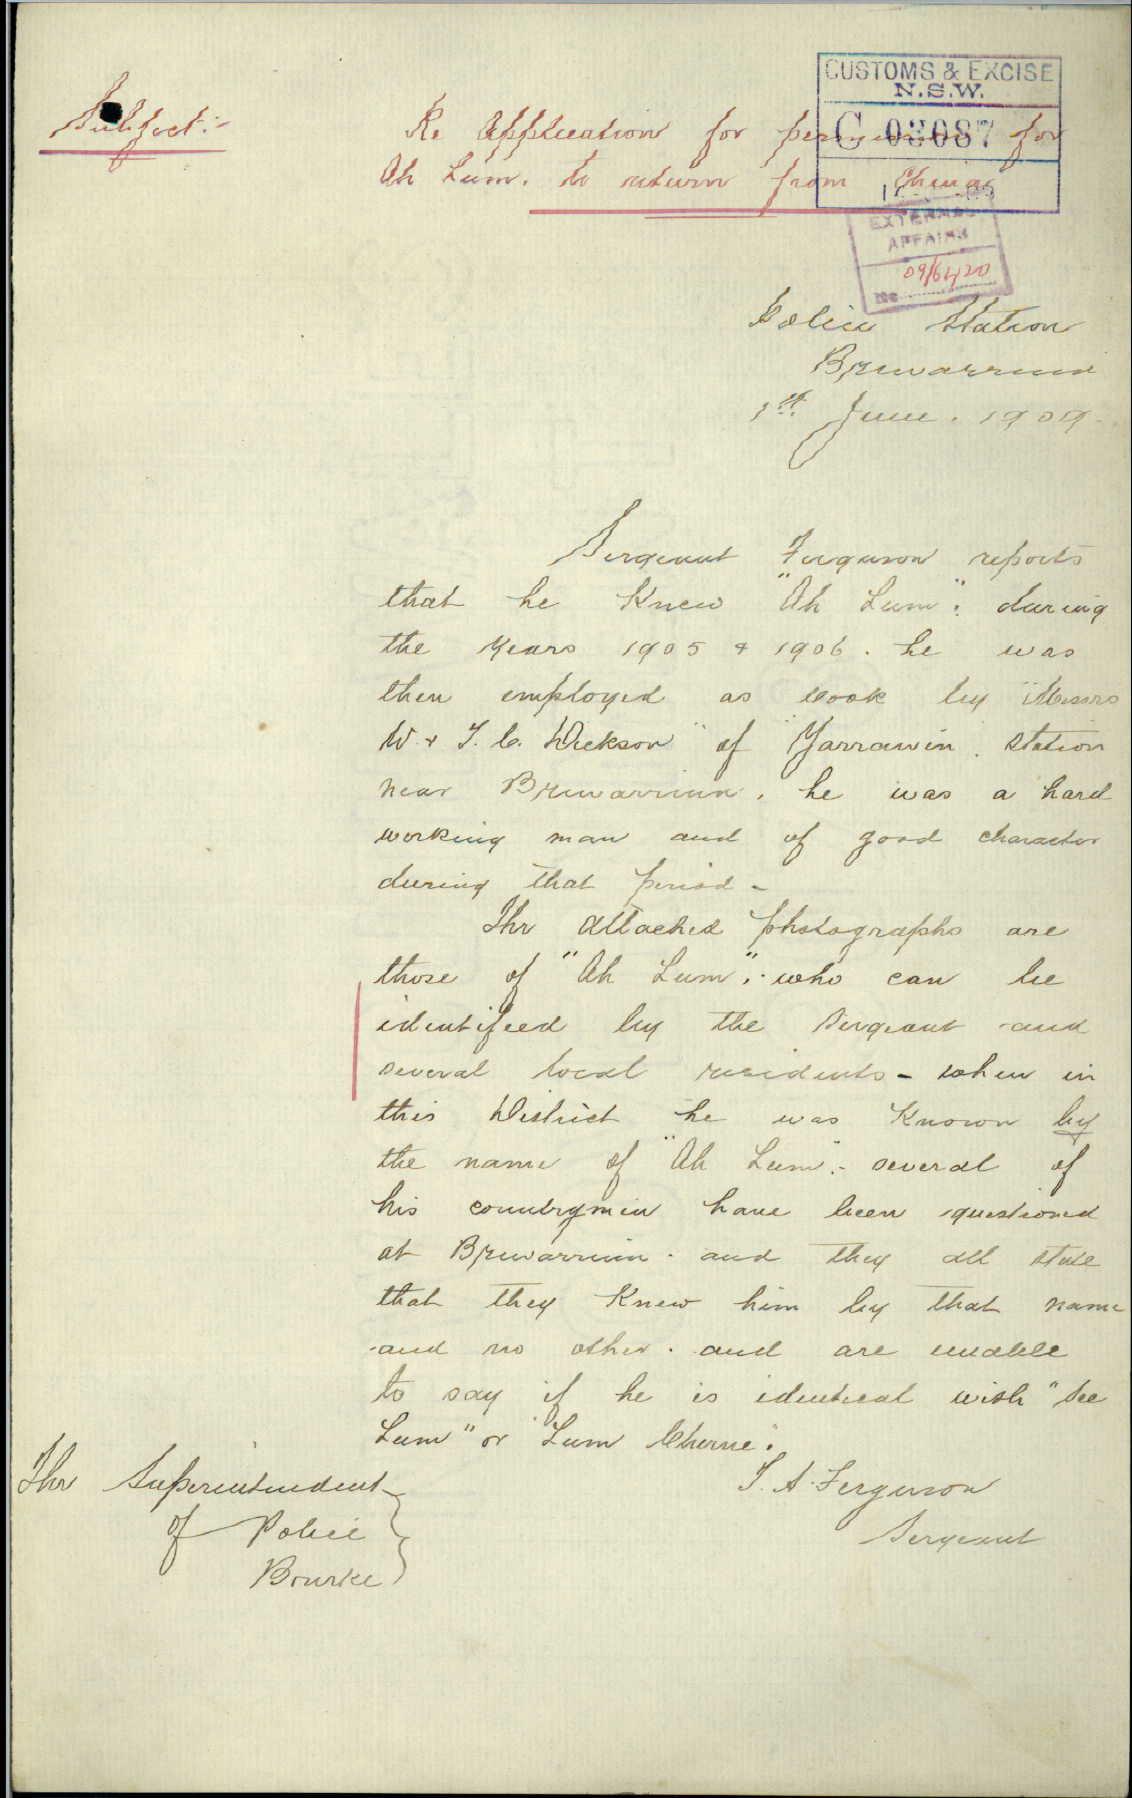 CUSTOMS & EXCISE
N.S.W.
C 03087
Subject:-
Re Application for permission for
Ah Lum. to return from China
EXTERNAL
AFFAIRS
No 09/6420
Police Station
Brewarrina
1st June. 1909.
Sergeant Ferguson reports
that he knew "Ah Lum". during
the years 1905 & 1906. he was
then employed as cook by "Messrs
W. & T. C. Dickson" of "Yarrawin". Station
near Brewarrina. he was a hard
working man and of good character
during that period -
The attached photographs are
those of "Ah Lum". who can be
identified by the Sergeant and
several local residents - when in
this District he was known by
the name of "Ah Lum". - several of
his countrymen have been questioned
at Brewarrina. and they all state
that they knew him by that name
and no other. and are unable
to say if he is identical with "See
Lum" or "Lum Cherne".
T. A. Ferguson
Sergeant
The Superintendent
of Police
Bourke